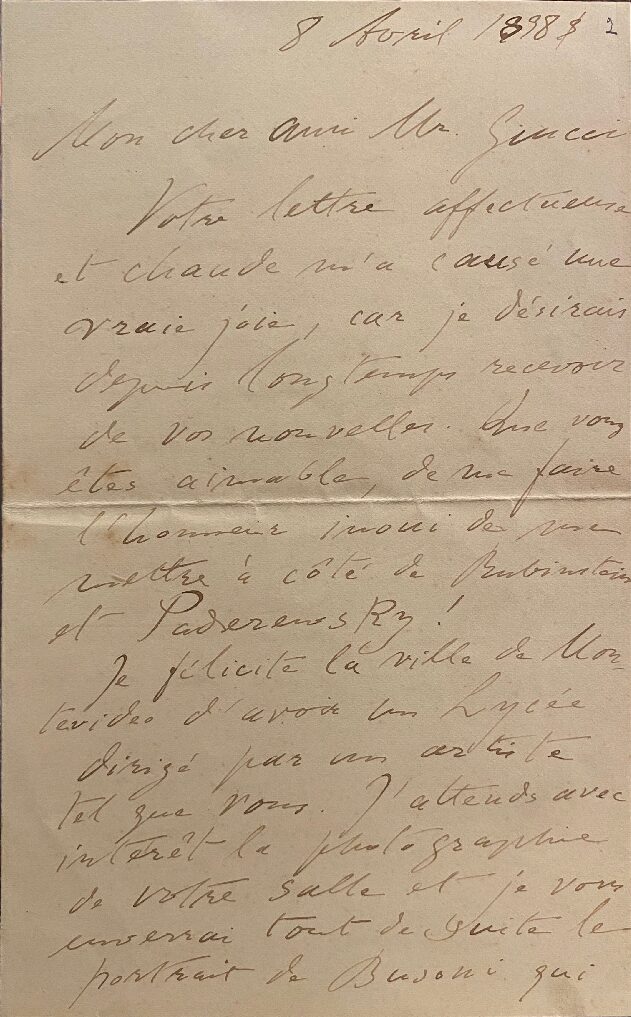 8 Avril 1898 2
Mon cher ami Mr. Giucci
Votre lettre affectueuse
et chaude m'a causé une
vraie joie, car je désirais
depuis longtemps recevoir
de vos nouvelles. Que vous
êtes aimable, de me faire
l'honneur inoui de me
mettre à côté de Rubinstein
et Paderewsky!
Je félicite la ville de Mon-
tevideo d'avoir un Lycée
dirigé par un artiste
tel que vous. J'attends avec
intérêt la photographie
de votre salle et je vous
enverrai tout de suite le
portrait de Busoni qui